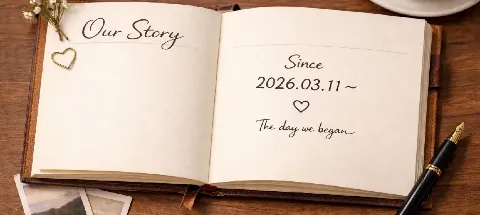 Our Story
Since
2026.03.11~
The day we began